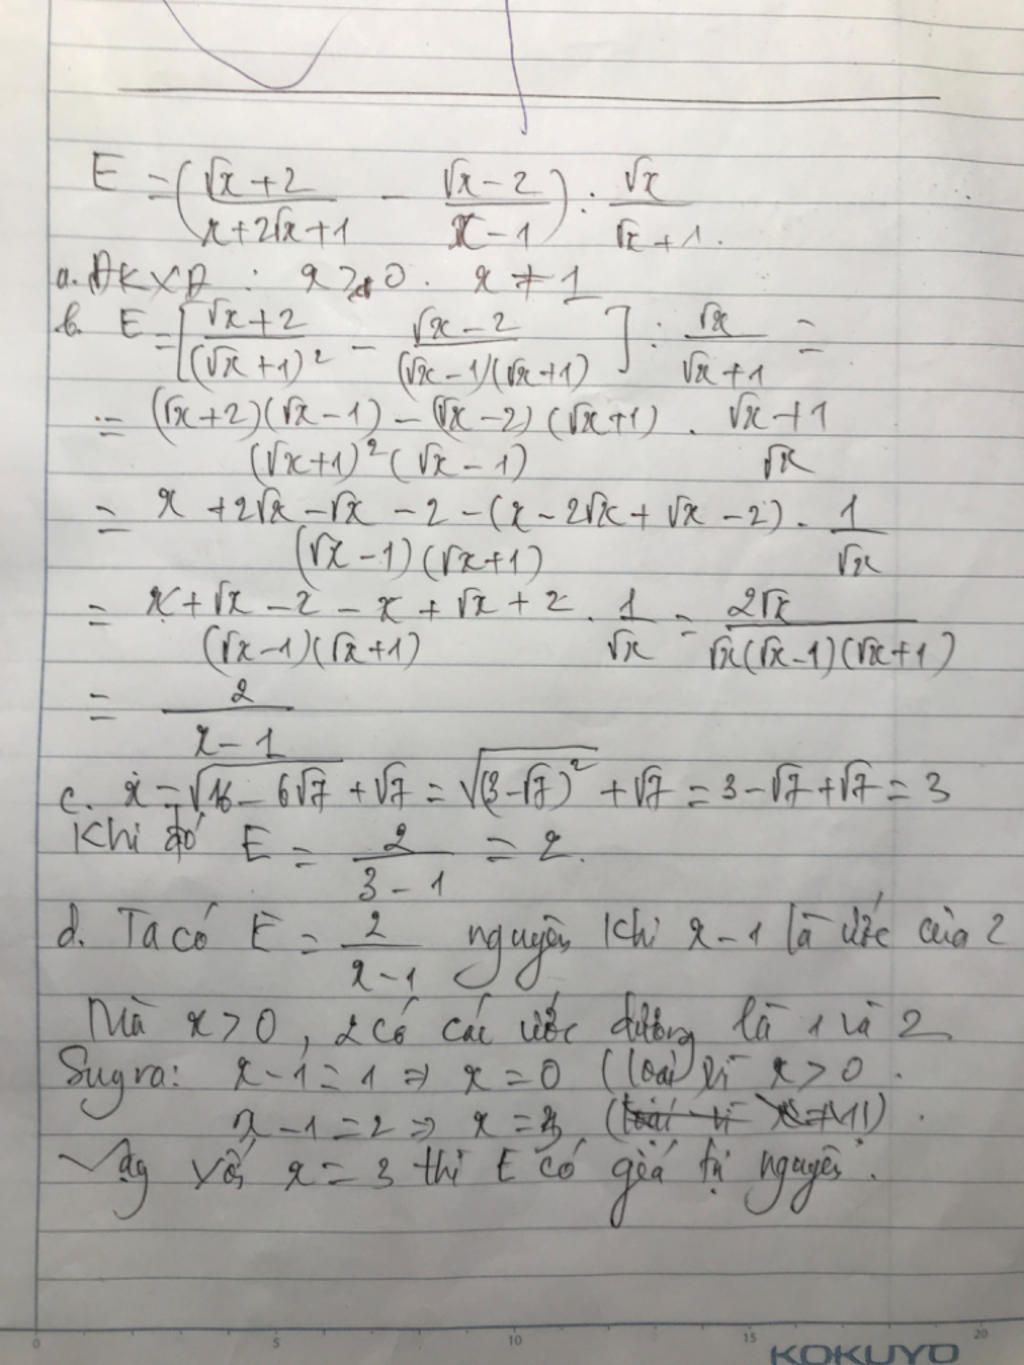 E = (√x + 2 / x + 2√x + 1 - √x - 2 / x - 1) : √x / √x + 1.
a. ĐKXĐ : x > 0. x ≠ 1
b. E = [√x + 2 / (√x + 1)² - √x - 2 / (√x - 1)(√x + 1)] : √x / √x + 1 =
= (√x + 2)(√x - 1) - (√x - 2)(√x + 1) / (√x + 1)²(√x - 1) . √x + 1 / √x
= x + 2√x - √x - 2 - (x - 2√x + √x - 2) / (√x - 1)(√x + 1) . 1 / √x
= x + √x - 2 - x + √x + 2 / (√x - 1)(√x + 1) . 1 / √x = 2√x / √x(√x - 1)(√x + 1)
= 2 / x - 1
c. x = √16 - 6√7 + √7 = √(3 - √7)² + √7 = 3 - √7 + √7 = 3
Khi đó E = 2 / 3 - 1 = 2.
d. Ta có E = 2 / x - 1 nguyên khi x - 1 là ước của 2
Mà x > 0, 2 có các ước dương là 1 và 2
Suy ra: x - 1 = 1 ⇒ x = 0 (loại) vì x > 0.
x - 1 = 2 ⇒ x = 3
Vậy với x = 3 thì E có giá trị nguyên.
0 5 10 15 20
KOKUYO